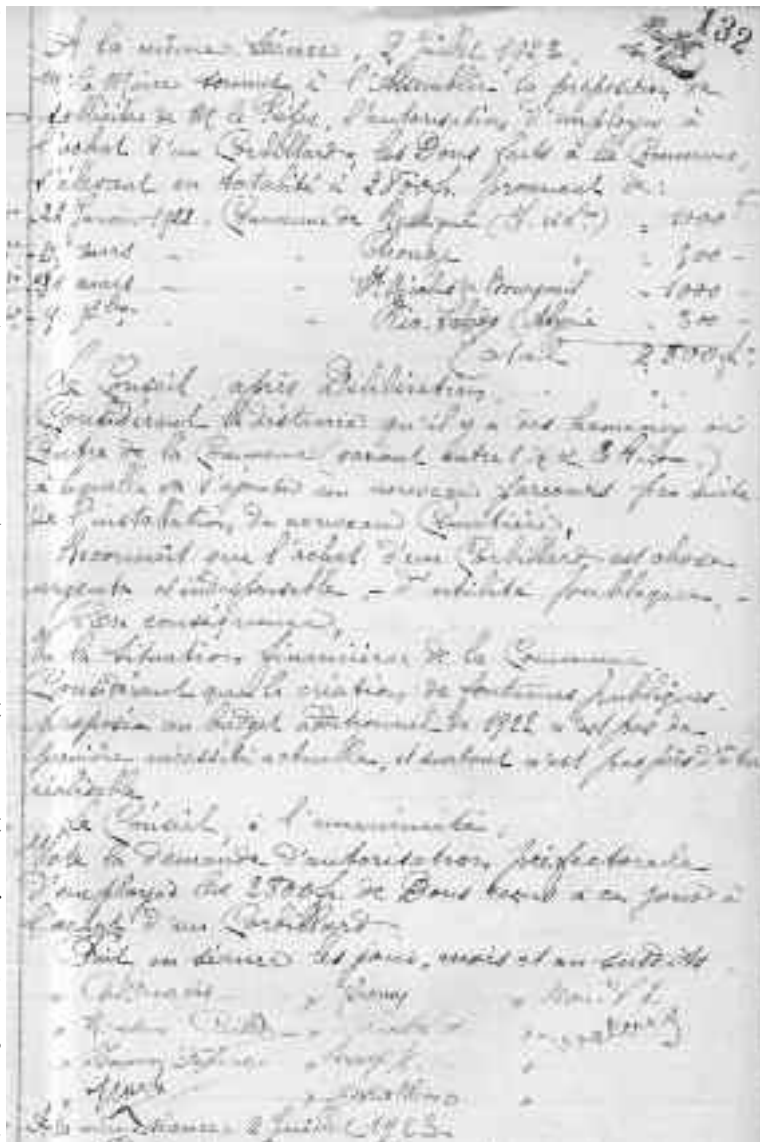 132
A la même Séance, 2 juillet 1922.
M. le Maire soumet à l'Assemblée la proposition de
solliciter de M. le Préfet, l'autorisation d'employer à
l'achat d'un Corbillard, les Dons faits à la Commune,
s'élevant en totalité à 2800f. provenant de:
22 1922. Commune de 1000
mars 500 -
mars St 1000 -
9 300 -
Total 2.800f.
Le Conseil, après Délibération,
Considérant la distance qu'il y a des hameaux au
Centre de la Commune (variant entre 1 et 3 Kilom.)
à laquelle va s'ajouter un nouveau parcours par suite
de l'installation du nouveau Cimetière,
Reconnaît que l'achat d'un Corbillard est chose
urgente et indispensable - d'utilité publique. -
En conséquence,
Vu la Situation financière de la Commune
Considérant que la création de fontaines publiques
proposée au budget additionnel de 1922 n'est pas de
première nécessité actuelle, et surtout n'est pas près d'être
réalisable
Le Conseil, à l'unanimité,
Vote la Demande d'autorisation préfectorale
d'employer les 2800f. de Dons reçus à ce jour à
l'achat d'un Corbillard.
Fait en séance les jour, mois et an susdits
A la même Séance 2 Juillet 1923.